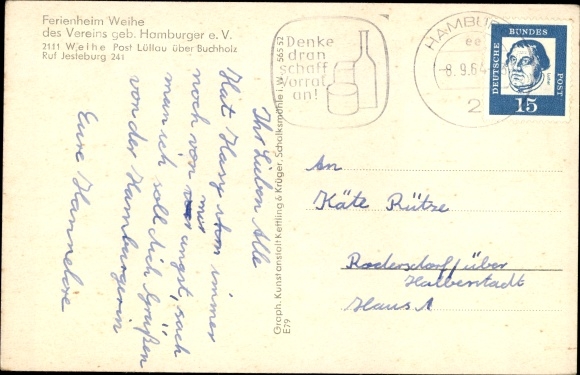 Ferienheim Weihe
des Vereins geb. Hamburger e. V.
2111 Weihe Post Lüllau über Buchholz
Ruf Jesteburg 241
Ihr Lieben Alle
Hat Harz immer
noch von mir
angst, sach
man ich soll dich grüßen
von der Hamburgerin
Eure Hannelore
Graph. Kunstanstalt Kettling & Krüger, Schalksmühle i. W. 565 52
E79
Denke
dran
schaff
Vorrat
an!
HAMBU
8.9.64
2
DEUTSCHE BUNDES POST
15
An
Käte Rütze
Rodersdorf über
Halberstadt
Haus 1